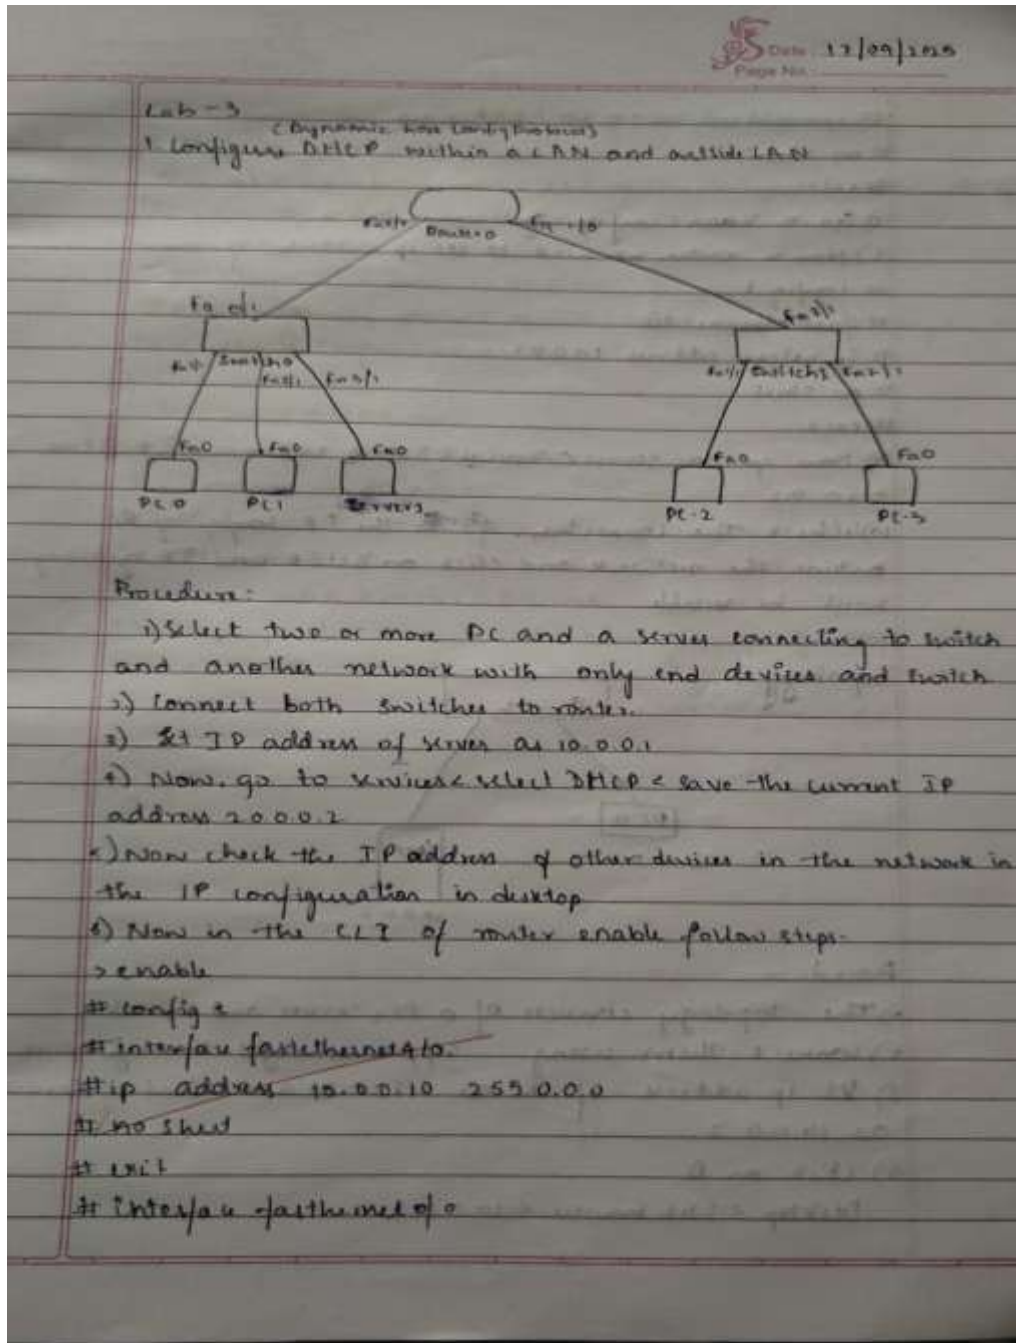 Date 17/09/2025
Page No.
Lab-3
(Dynamic Host Config Protocol)
1 Configure DHCP within a LAN and outside LAN
Router 0
Fa 0/1
Fa 3/1
Fa 3/1
Fa0 Fa0 Fa0 Fa0 Fa0
PC 0 PC1 Server3 PC-2 PC-3
Procedure:
1) Select two or more PC and a server connecting to switch
and another network with only end devices and switch
2) Connect both switches to router.
3) Set IP address of server as 10.0.0.1
4) Now, go to services < select DHCP < save the current IP
address 20.0.0.2
5) Now check the IP address of other devices in the network in
the IP configuration in desktop
6) Now in the CLI of router enable follow steps-
> enable
# config t
# interface fastethernet4/0.
# ip address 10.0.0.10 255.0.0.0
# no shut
# exit
# interface fasthernet 0/0